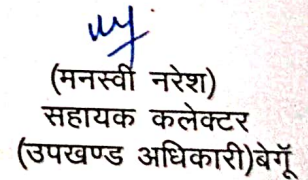 (मनस्वी नरेश)
सहायक कलेक्टर
(उपखण्ड अधिकारी)बेगूँ